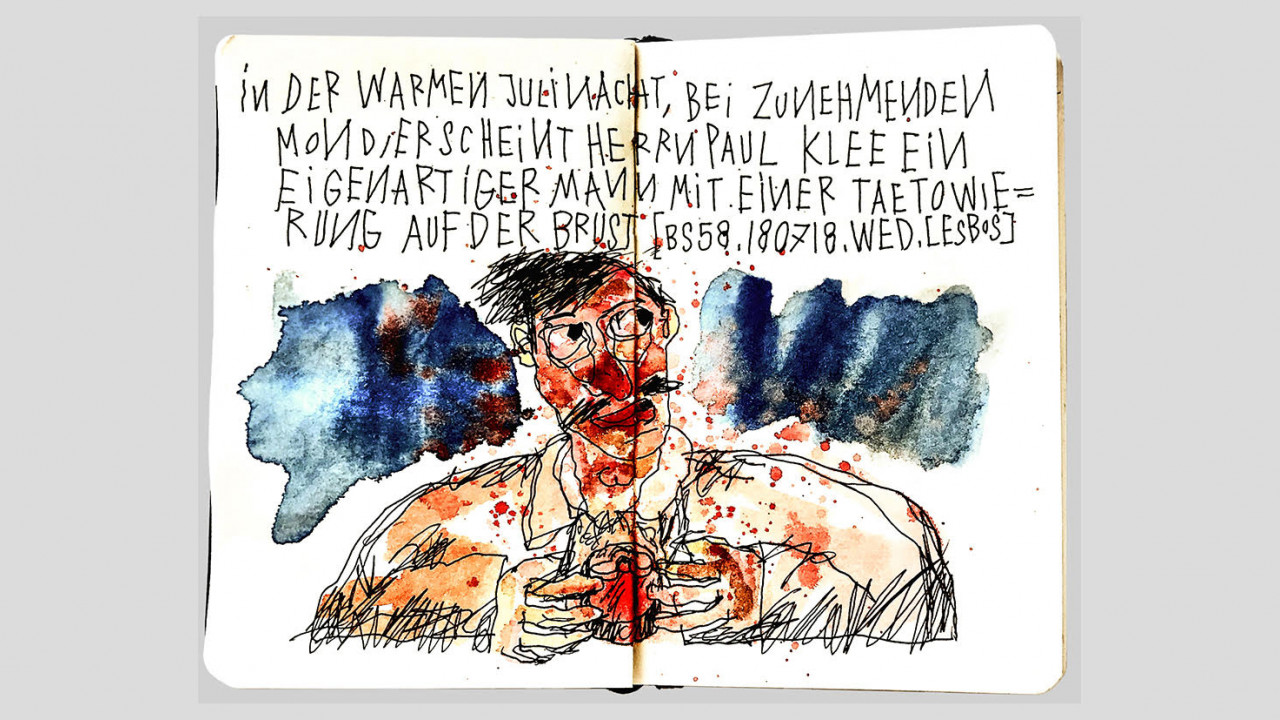 iN DER WARMEN JULiNACHT, BEi ZUNEHMENDEN
MOND ERSCHEiNT HERRN PAUL KLEE EiN
EiGENARTiGER MANN MiT EINER TAETOWIE=
RUNG AUF DER BRUST [BS58.180718.WED.LESBOS]